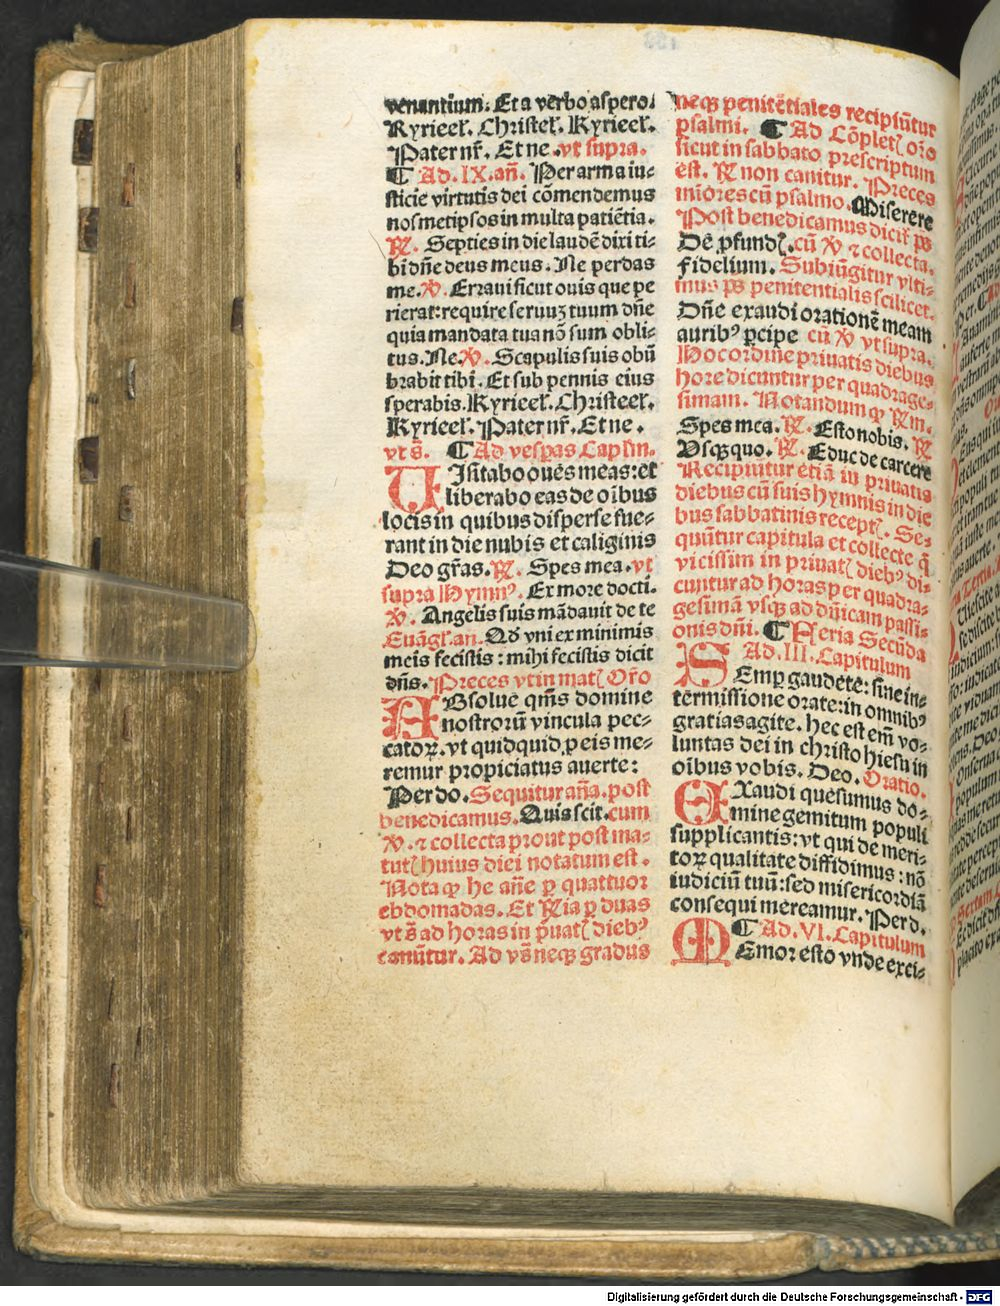 venantium. Et a verbo aspero.
Kyrieel̄. Christel̄. Kyrieel̄.
Pater nr̄. Et ne. vt supra.
¶ Ad. IX. an̄. Per arma iu⸗
sticie virtutis dei cōmendemus
nosmetipsos in multa patiētia.
℟. Septies in die laudē dixi ti⸗
bi dn̄e deus meus. Ne perdas
me. ℣. Erraui sicut ouis que pe
rierat: require seruuꝫ tuum dn̄e
quia mandata tua nō sum obli⸗
tus. Ne. ℣. Scapulis suis obū
brabit tibi. Et sub pennis eius
sperabis. Kyrieel̄. Christeel̄.
Kyrieel̄. Pater nr̄. Et ne.
vt s̄. ¶ Ad vesp̄as Cap̄lm.
UIsitabo oues meas: et
liberabo eas de oībus
locis in quibus disperse fue⸗
rant in die nubis et caliginis
Deo gr̄as. ℟. Spes mea. vt
supra Hymnꝰ. Ex more docti.
℣. Angelis suis mādauit de te
Euāgl̄. an. Qd̄ vni ex minimis
meis fecistis: mihi fecistis dicit
dn̄s. Preces vt in matꝭ Or̄o
ABsolue qm̄s domine
nostrorū vincula pec⸗
catoꝝ. vt quidquid ꝓ eis me⸗
remur propiciatus auerte:
Per do. Sequitur an̄a. post
benedicamus. Quis scit. cum
℣. ⁊ collecta prout post ma⸗
tutꝭ huius diei notatum est.
Nota ꝙ he an̄e ꝑ quattuor
ebdomadas. Et ℟ia ꝑ duas
vt s̄ ad horas in p̄uatꝭ diebꝰ
canūtur. Ad vs̄ neqꝫ gradus
neqꝫ penitētiales recipiūtur
psalmi. ¶ Ad Cōpletꝭ or̄o
sicut in sabbato prescriptum
est. ℟ non canitur. Preces
miores cū psalmo. Miserere
Post benedicamus dicit̄ ps
De ꝓfundꝭ. cū ℣ ⁊ collecta.
Fidelium. Subiūgitur vlti⸗
mus ps̄ penitentialis scilicet.
Dn̄e exaudi orationē meam
auribꝰ ꝑcipe cū ℣ vt supra.
Hoc ordine priuatis diebus
hore dicuntur per quadrage⸗
simam. Notandum ꝙ ℟m.
Spes mea. ℟. Esto nobis. ℟
Vsqꝫquo. ℟. Educ de carcere
Recipiūtur etiā in priuatis
diebus cū suis hymnis in die
bus sabbatinis receptꝭ. Se⸗
quūtur capitula et collecte q̄
vicissim in priuatꝭ diebꝰ di⸗
cuntur ad horas per quadra⸗
gesimā vsqꝫ ad dn̄icam passi⸗
onis dn̄i. ¶ Feria Secūda
Ad. III. Capitulum
SEmꝑ gaudete: sine in⸗
termissione orate: in omnibꝰ
gratias agite. hec est em̄ vo⸗
luntas dei in christo hiesu in
oībus vobis. Deo. Oratio.
EXaudi quesumus do⸗
mine gemitum populi
supplicantis: vt qui de meri⸗
toꝝ qualitate diffidimus: nō
iudiciū tuū: sed misericordiā
consequi mereamur. Perd.
¶ Ad. VI. Capitulum
MEmor esto vnde exci⸗
Digitalisierung gefördert durch die Deutsche Forschungsgemeinschaft - DFG